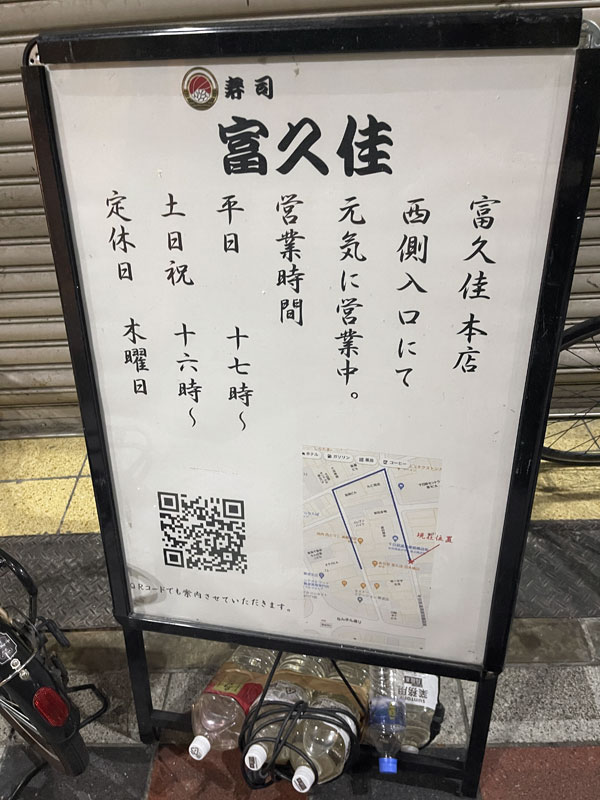 寿司
富久佳
富久佳本店
西側入口にて
元気に営業中。
営業時間
平日 十七時〜
土日祝 十六時〜
定休日 木曜日
ホテル
ガソリン
コーヒー
現在位置
QRコードでも案内させていただきます。
業務用